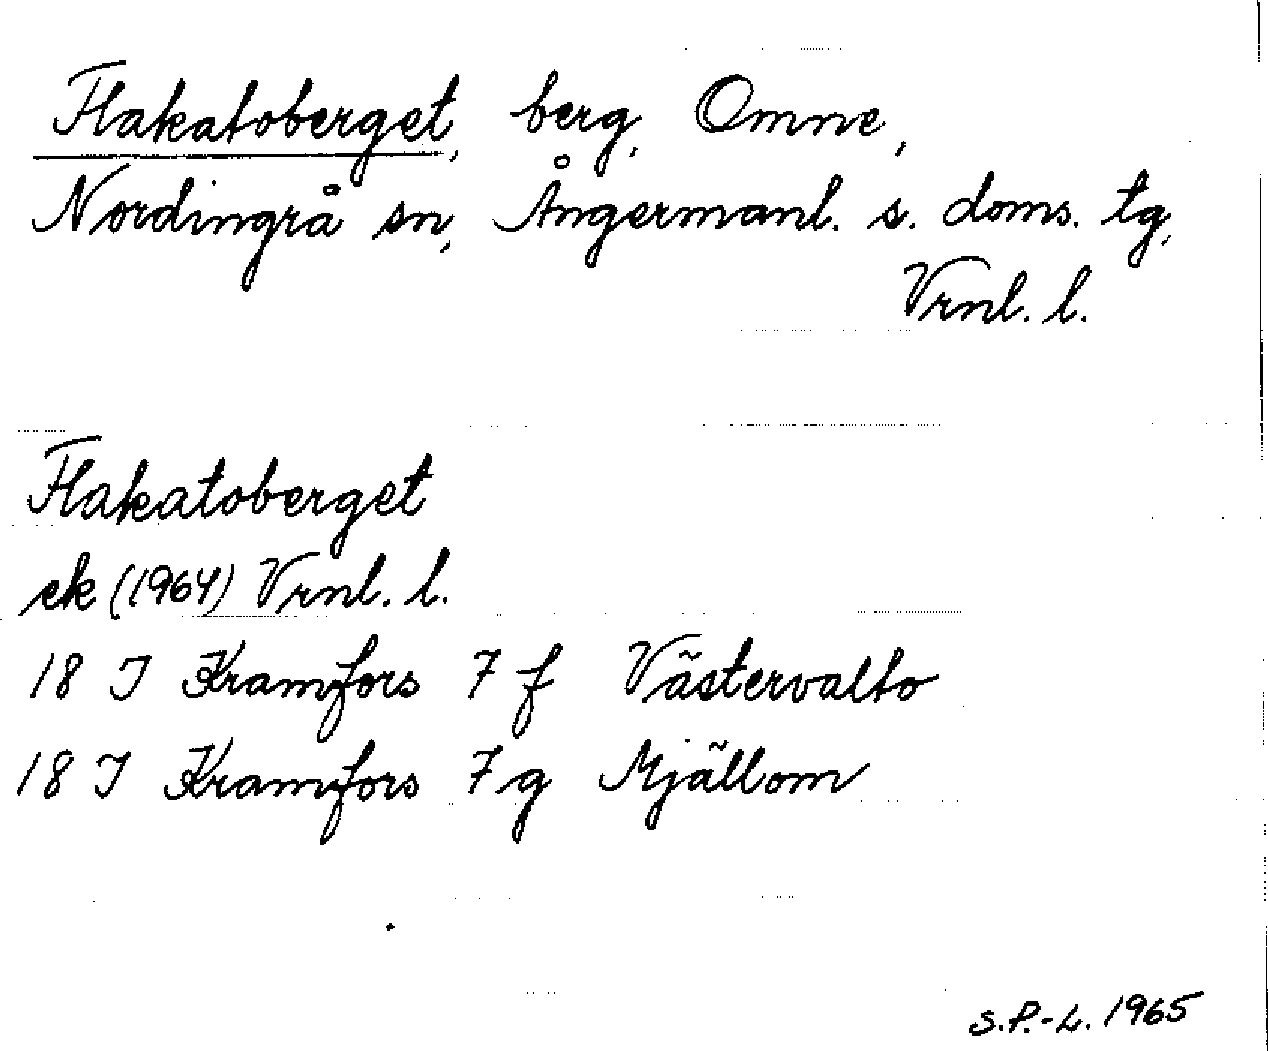 Flakatoberget, berg, Omne,
Nordingrå sn, Ångermanl. s. doms. tg,
Vrnl. l.
Flakatoberget
ek (1964) Vrnl. l.
18 I Kramfors 7 f Västervalto
18 I Kramfors 7 g Mjällom
S.P.-L. 1965